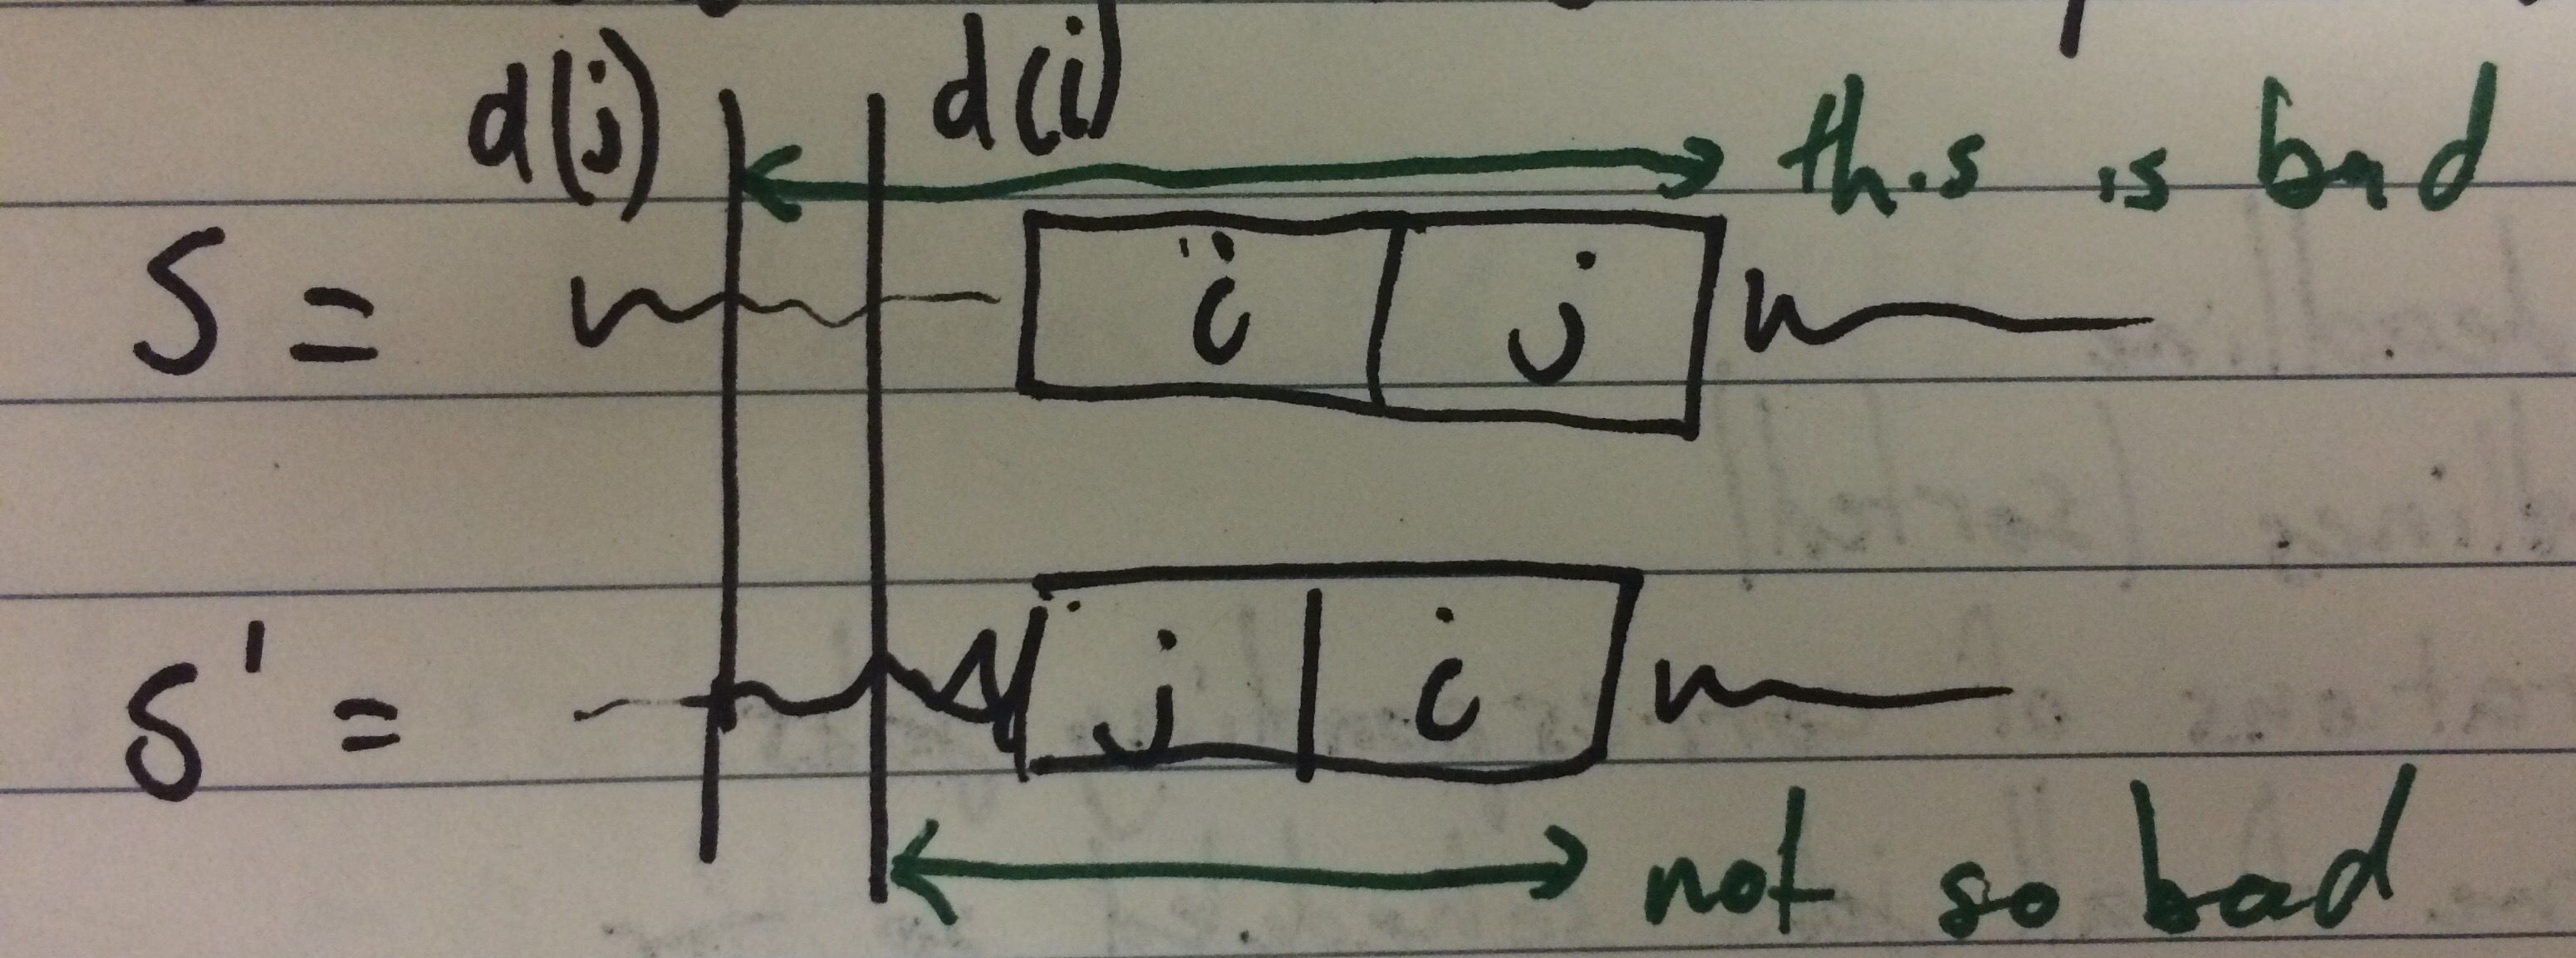 d(j) d(i) this is bad
S = i j
S' = j i
not so bad